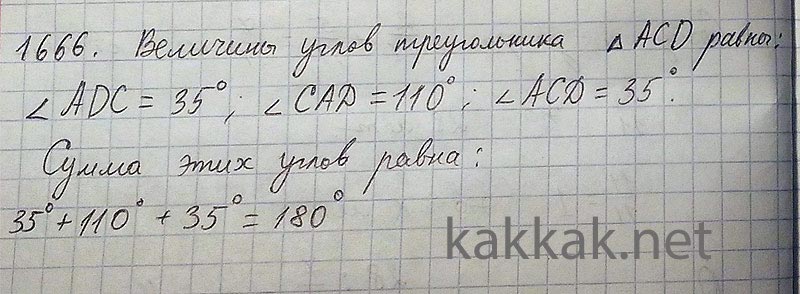 1666. Величины углов треугольника △ ACD равны:
∠ ADC = 35°; ∠ CAD = 110°; ∠ ACD = 35°.
Сумма этих углов равна:
35° + 110° + 35° = 180°
kakkak.net